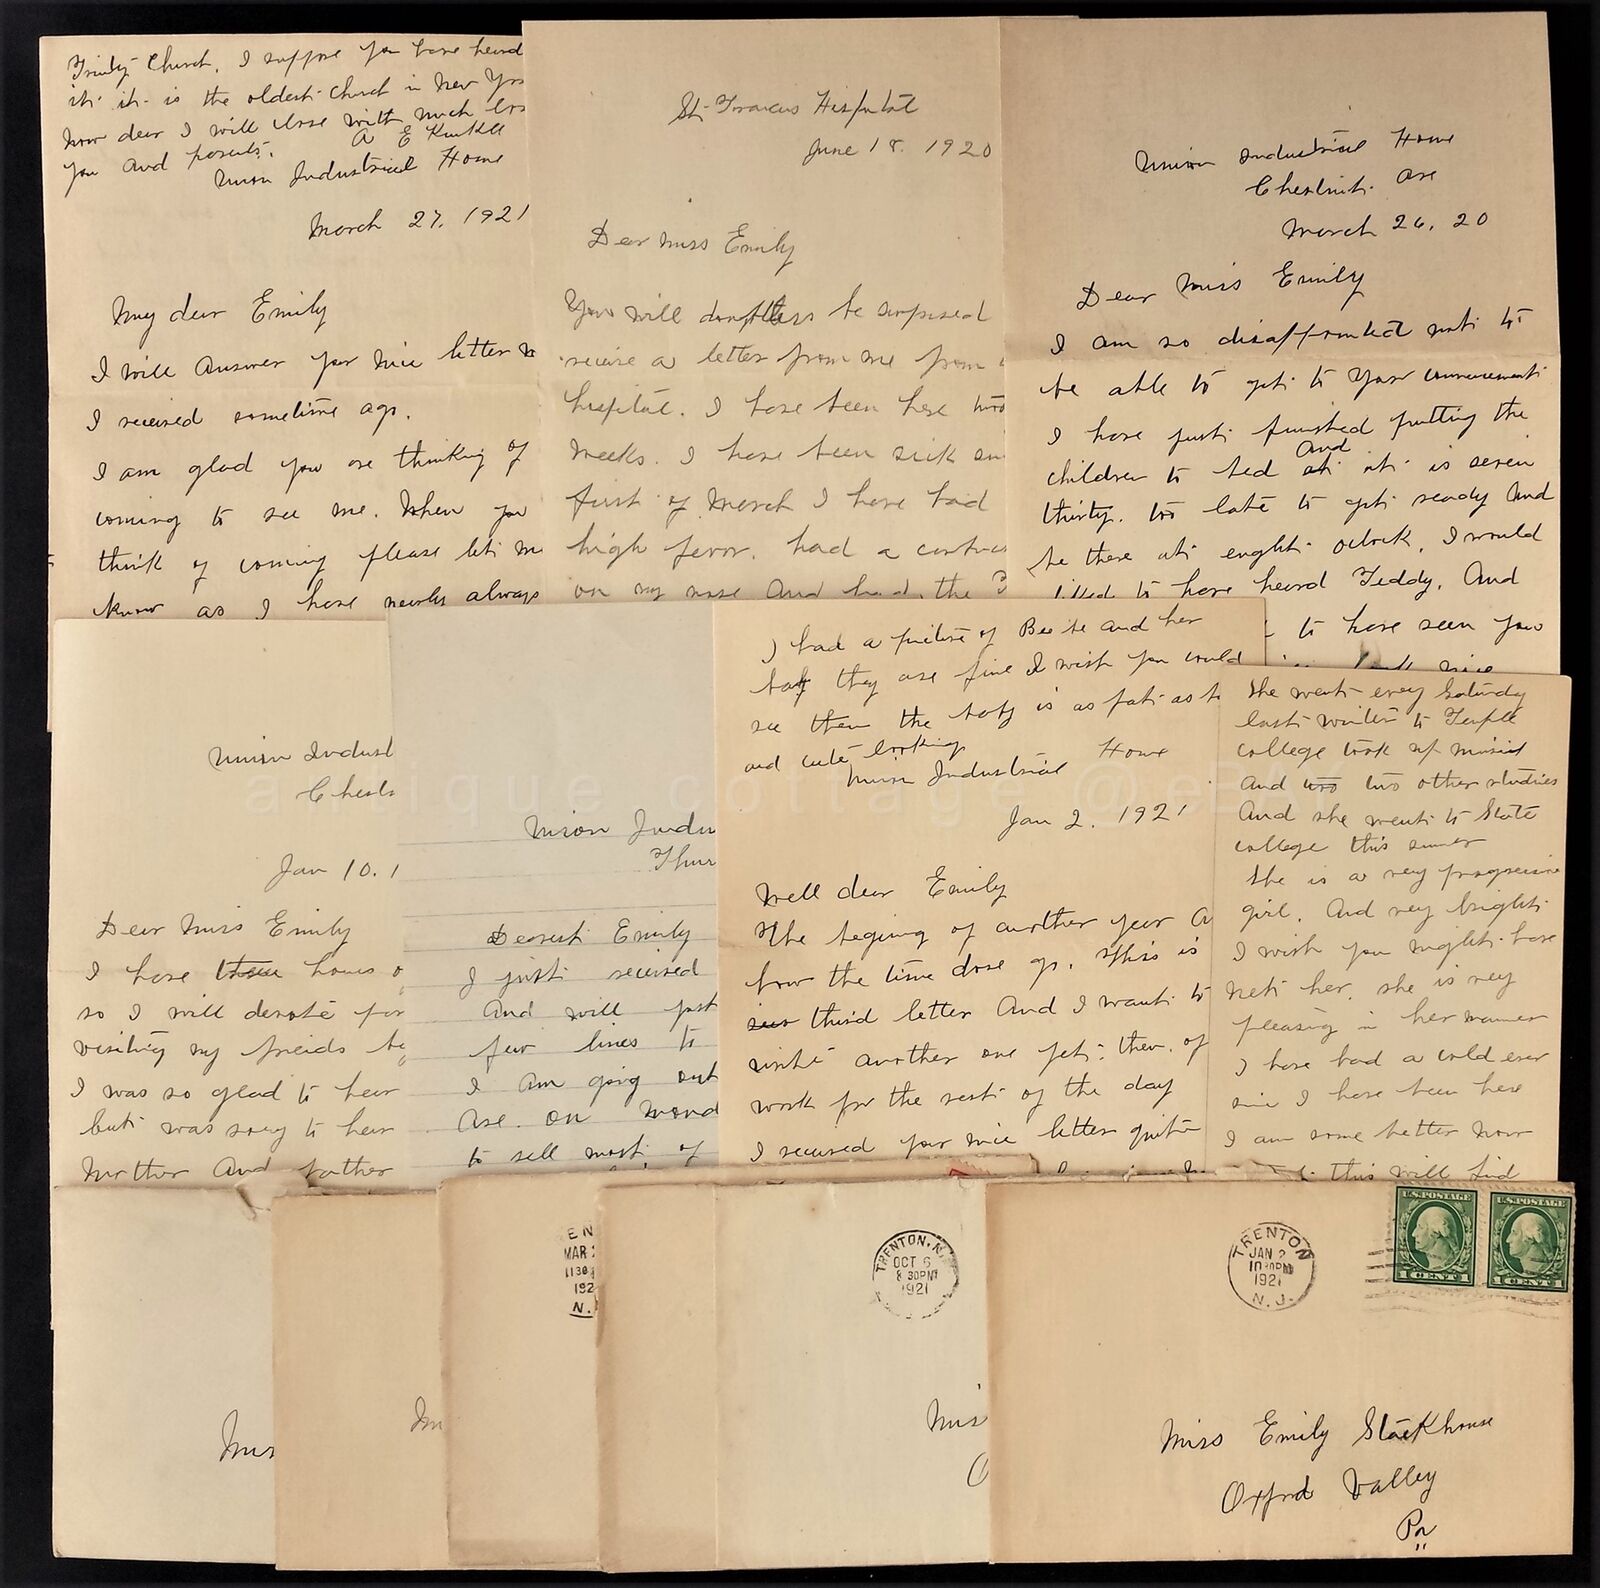 Trinity Church, I suppose you have heard
it it is the oldest Church in New Yor
now dear I will close with much lov
you and
A E Kunkle
Union Industrial Home
March 27. 1921
My dear Emily
I will Answer your nice letter
I recived sometime ago.
I am glad you are thinking of
coming to see me. When you
think of coming please let me
know as I have nearly always
St Francis Hospital
June 18. 1920
Dear Miss Emily
You will doubtless be surprised
receive a letter from me from
hospital. I have been here two
weeks. I have been sick
first of March I have had
high fevor. had a
on my nose And had the
Union Industrial Home
Chestnut Ave
March 26, 20
Dear Miss Emily
I am so disappointed not to
be able to get to your
I have just finished putting the
And
children to bed at it is seven
thirty. too late to get ready And
be there at enght oclock. I would
liked to have heard Teddy. And
to have seen you
nice
Union Indust
Chest
Jan 10. 1
Dear Miss Emily
I have three hours
so I will devote for
visiting my freids
I was so glad to hear
but was sorry to hear
Mother And father
Union Indu
Thur
Dearest Emily
I just received
And will just
few lines to
I Am going out
Ave. on Mond
to sell most of
I had a picture of and her
baby they are fine I wish you could
see them the baby is as fat as
and cute looking
Union Industrial Home
Jan 2. 1921
Well dear Emily
The begining of another year A
how the time dose go. This is
third letter And I want to
write another one yet. then. of
work for the rest of the day
I received your nice letter quite
She went every Saturday
last winter to Temple
college took up music
And two two other studies
And she went to State
college this sumer
She is a very progresive
girl. And very bright
I wish you might have
met her. she is very
pleasing in her manner
I have had a cold ever
since I have been here
I am some better now
this will find
EN
MAR 2
1130
192
N.
TRENTON, N.
OCT 6
8 30PM
1921
TRENTON
JAN 2
10 30PM
1921
N.J.
U.S. POSTAGE
1 CENT 1
U.S. POSTAGE
1 CENT 1
Miss
M
Mis
O
Miss Emily Stackhouse
Oxford Valley
Pa
antique cottage @ e